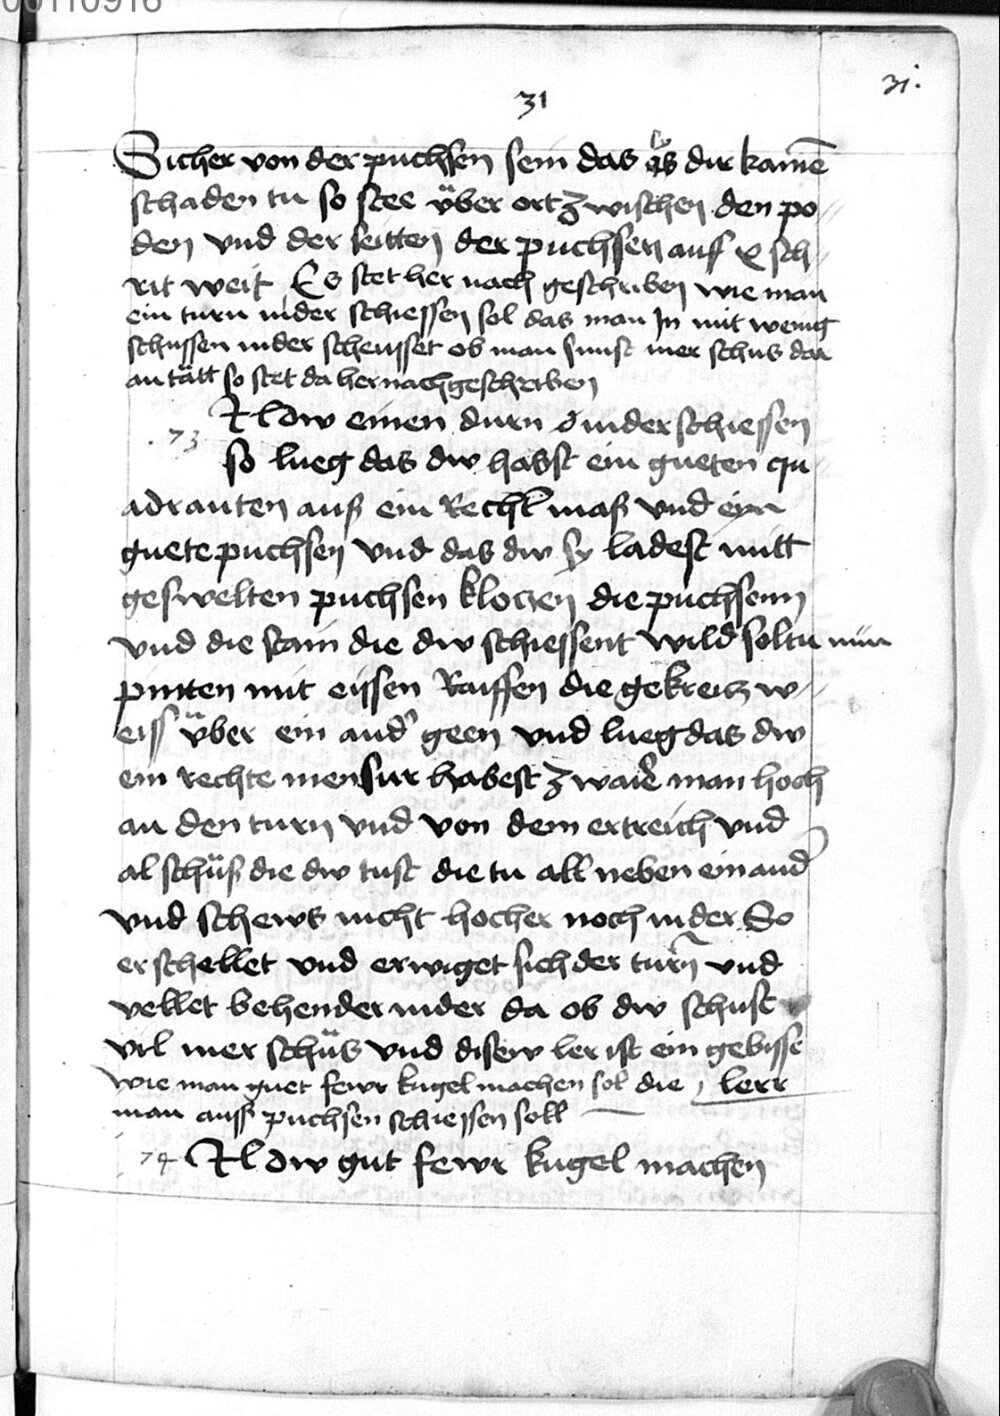 00110916
31.
31
Sicher von der puchsen sein das es dir kainē
schaden tu so stee über ort zwischen den po
den vnd der seitten der puchsen auf x sch
rit weit Es stet her nach geschriben wie man
ein turn nider schiessen sol das man In mit wenig
schussen nider scheusset ob man sunst mer schus dar
an tätt so stet da hernach geschriben
73 Wildw einen durn nider schiessen
so lueg das dw habst ein gueten qu
adranten auß ein Rechl maß vnd eyn
guete puchsen vnd das dw sy ladest mitt
geswelten puchsen kloczen die puchsenn
vnd die stain die dw schiessent wild soltu
pinten mit eyssen Raiffen die gekreicz w
eiss über ein and' geen vnd lueg das dw
ein rechte mensur habest zwaier man hoch
an den turn vnd von dem ertreich vnd
al schüß die dw tust die tu all neben einand'
vnd schews nicht hocher noch nider So
erschellet vnd erwiget sich der turn̄ vnd
vellet behender nider da ob dw schust
vil mer schüs vnd disew ler ist ein gebisse
lerr
wie man guet fewr kugel machen sol die
man auss puchsen schiessen soll
74 Wildw gut fewr kugel machen